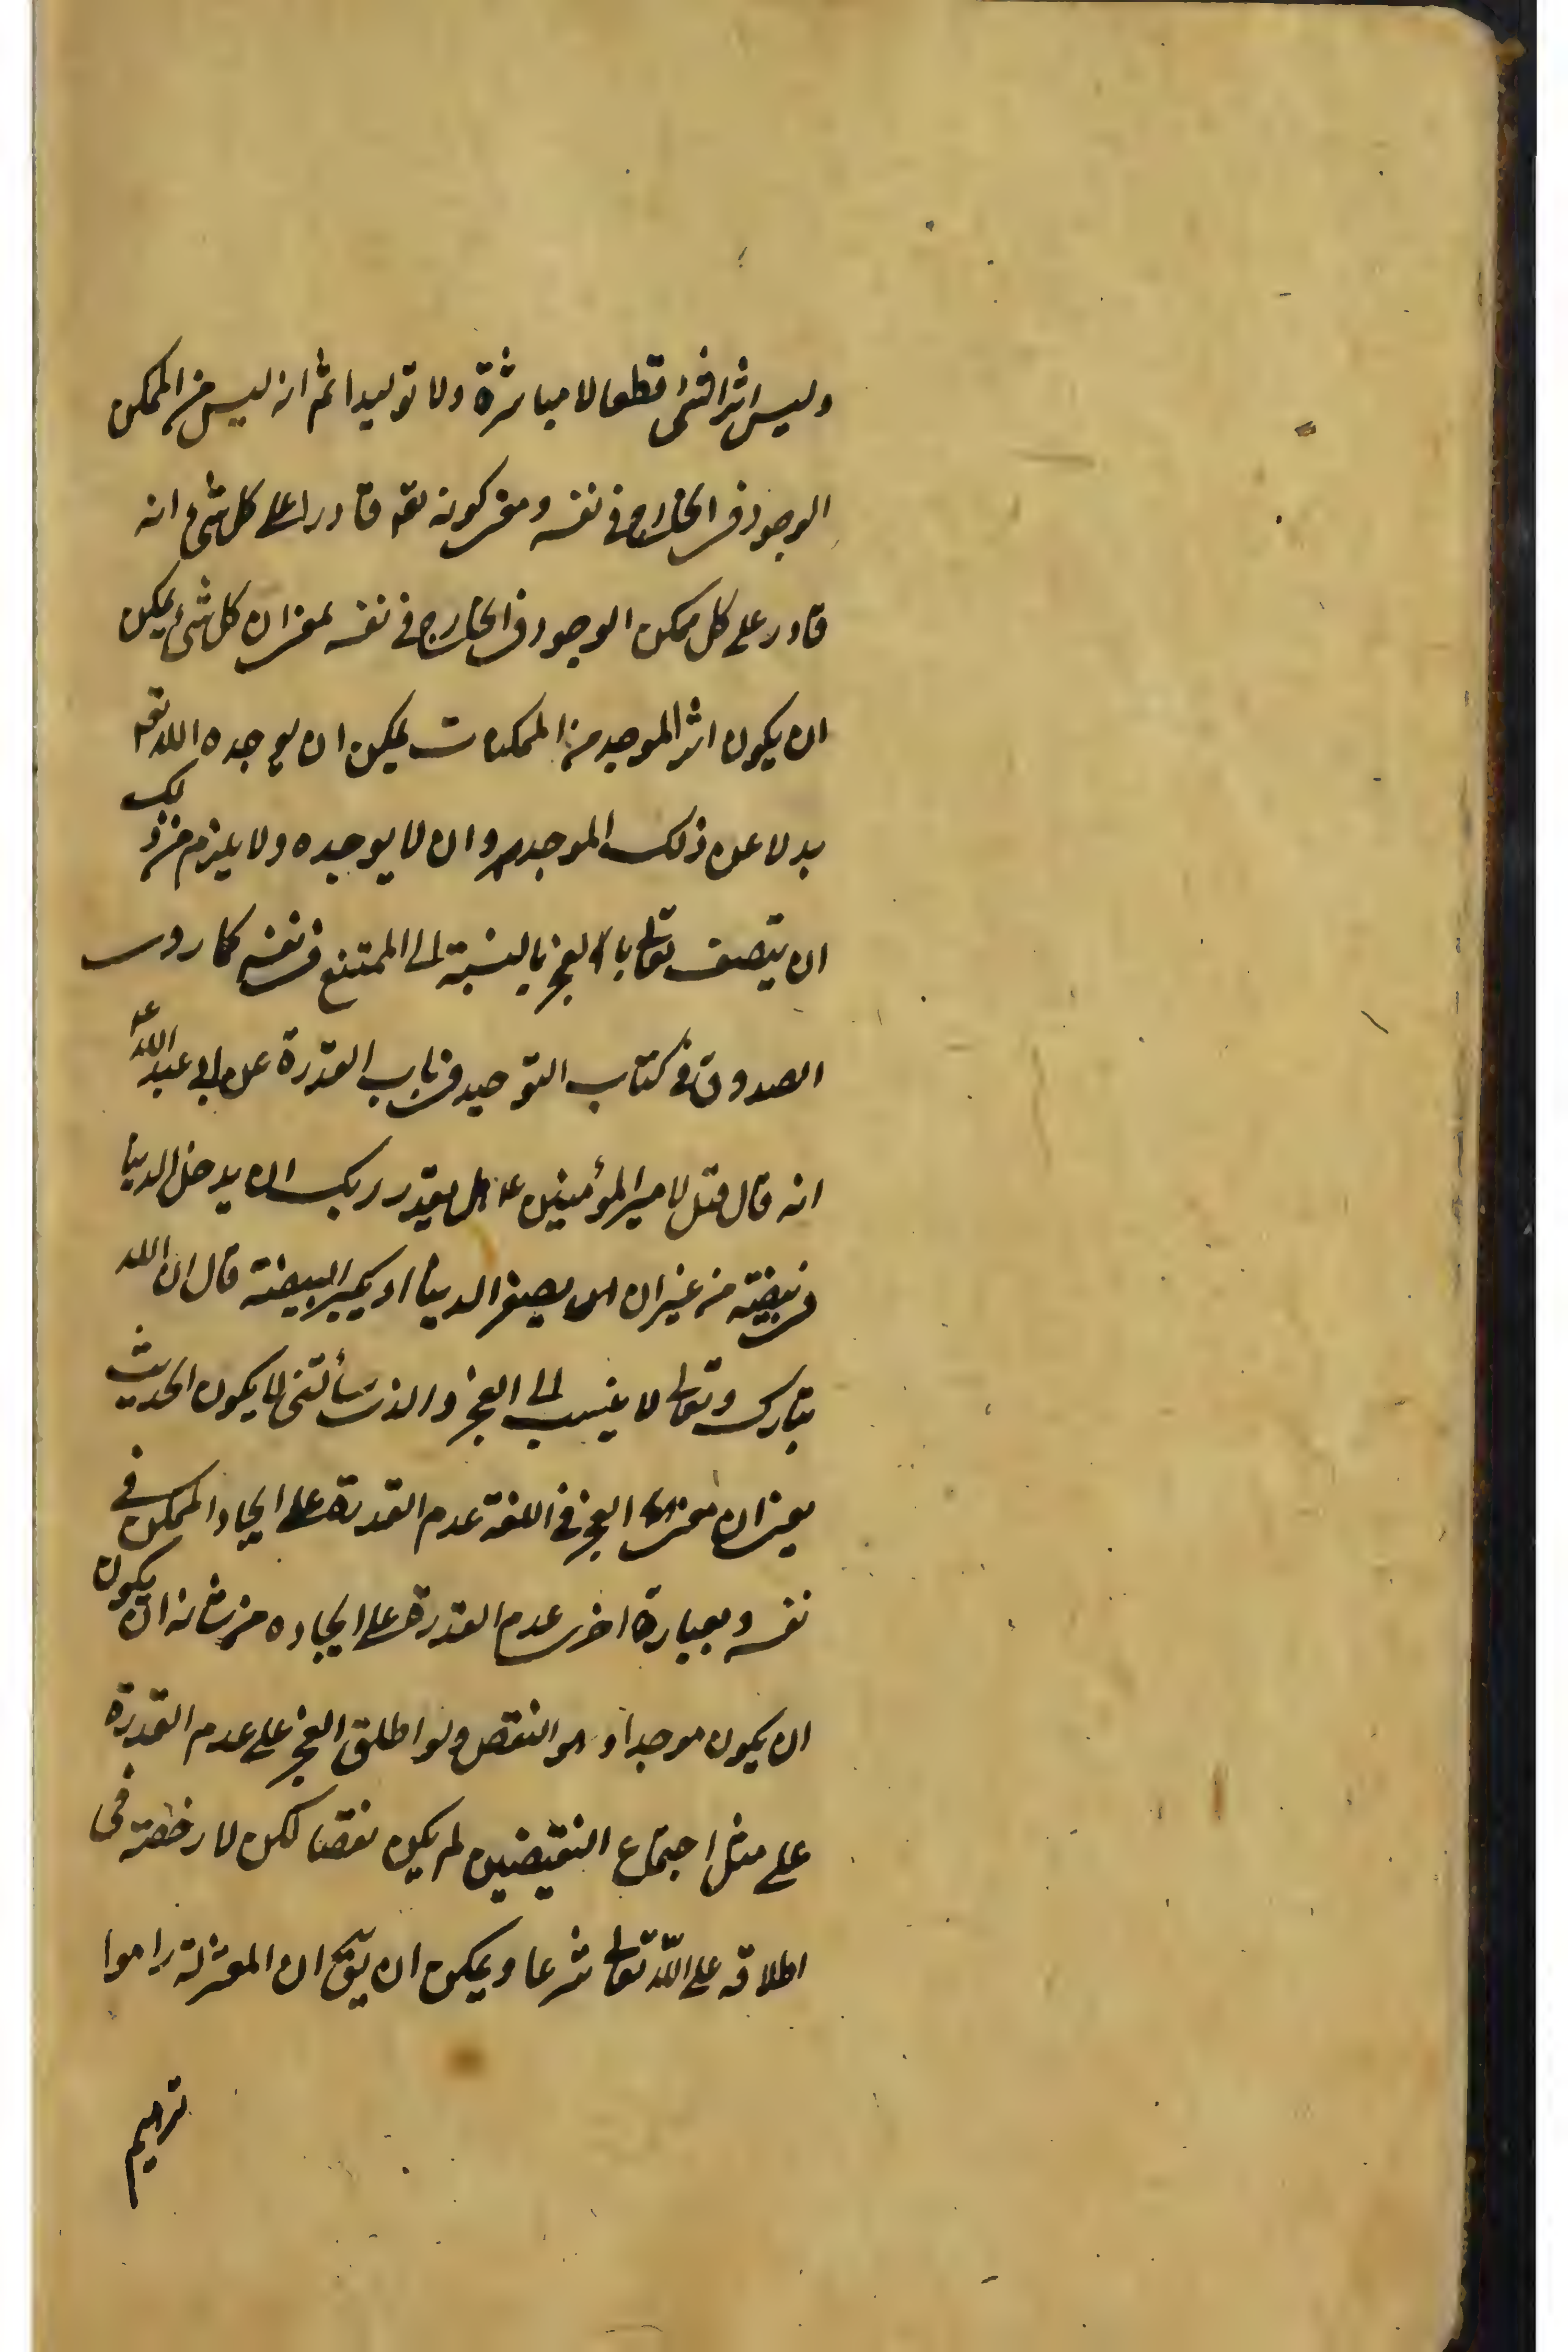 وليس اثرا لشئ قطعا لا مباشرة ولا توليدا ثم انه ليس من الممكن
الوجود في الخارج في نفسه ومعنى كونه تعه قادرا على كل شئ انه
قادر على كل ممكن الوجود في الخارج في نفسه بمعنى ان كل شئ يمكن
ان يكون اثر الموجد من الممكنات يمكن ان يوجده الله تعه
بدلا عن ذلك الموجد وان لا يوجده ولا يلزم من ذلك
ان يتصف تعالى بالعجز بالنسبة الى الممتنع في نفسه كما روى
الصدوق في كتاب التوحيد في باب القدرة عن ابي عبد الله ع
انه قال قيل لامير المؤمنين ع هل يقدر ربك ان يدخل الدنيا
في بيضة من غير ان يصغر الدنيا او يكبر البيضة قال ان الله
تبارك وتعالى لا ينسب الى العجز والذي سألتنى لا يكون الحديث
يعنى ان معنى العجز في اللغة عدم القدرة على ايجاد الممكن في
نفسه وبعبارة اخرى عدم القدرة على ايجاده من شانه ان يكون
ان يكون موجدا وهو النقص ولو اطلق العجز على عدم القدرة
على مثل اجتماع النقيضين لم يكن نقصا لكن لا رخصة في
اطلاقه على الله تعالى شرعا ويمكن ان يق ان المعتزلة راموا